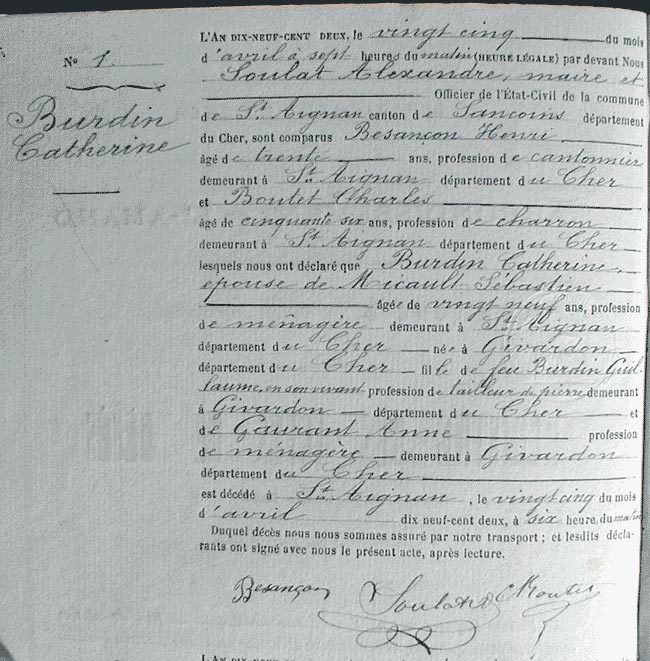 L'AN DIX-NEUF-CENT DEUX, le vingt cinq du mois
N° 1
d'avril à sept heures du matin (HEURE LÉGALE) par devant Nous
Soulat Alexandre, maire et
Officier de l'État-Civil de la commune
Burdin
Catherine
de St Aignan canton de Sancoins département
du Cher, sont comparus Besançon Henri
âgé de trente ans, profession de cantonnier
demeurant à St Aignan département du Cher
et Boutet Charles
âgé de cinquante six ans, profession de charron
demeurant à St Aignan département du Cher
lesquels nous ont déclaré que Burdin Catherine,
epouse de Micault Sébastien
âgée de vingt neuf ans, profession
de ménagère demeurant à St Aignan
département du Cher née à Givardon
département du Cher fille de feu Burdin Guil-
laume, en son vivant profession de tailleur de pierre demeurant
à Givardon département du Cher et
de Gaurant Anne profession
de ménagère demeurant à Givardon
département du Cher
est décédé à St Aignan, le vingt cinq du mois
d'avril dix neuf-cent deux, à six heure du matin
Duquel décès nous nous sommes assuré par notre transport ; et lesdits décla-
rants ont signé avec nous le présent acte, après lecture.
Besançon Soulat
L'AN DIX-NEUF